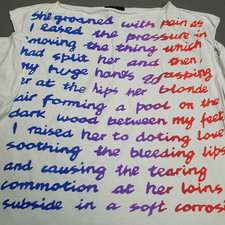 she groaned with pain as
I eased the pressure in
moving the thing which
had split her and then I
my huge hands grasping
her at the hips her blonde
air forming a pool on the
dark wood between my feet
I raised her to doting love
soothing the bleeding lips
and causing the tearing
commotion at her loins
subside in a soft corrosi